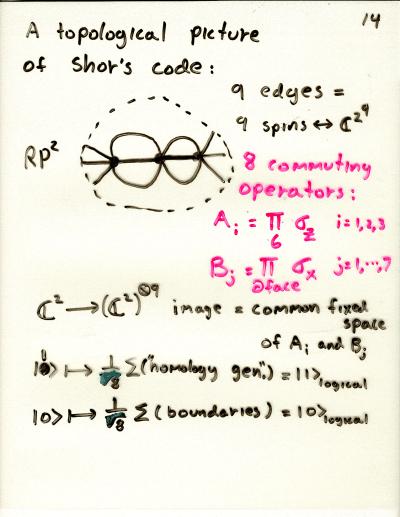 14
A topological picture
of Shor's code:
9 edges =
9 spins ↔ ℂ^2^9
RP²
8 commuting
operators:
A_i = ∏_6 σ_z i=1,2,3
B_j = ∏_∂face σ_x j=1,...,7
ℂ² → (ℂ²)^⊗9 image = common fixed
space
of A_i and B_j
|1⟩ ↦ 1/√8 Σ("homology gen.") = |1⟩_logical
|0⟩ ↦ 1/√8 Σ(boundaries) = |0⟩_logical